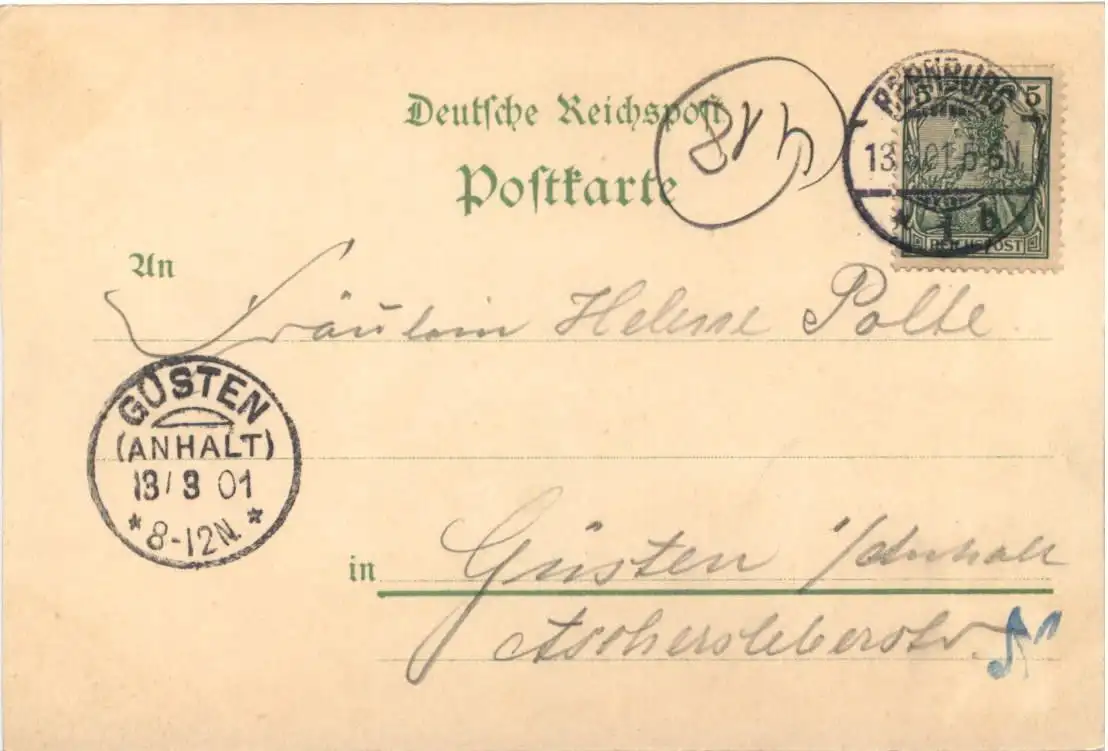 Deutsche Reichspost
Postkarte
418
BERNBURG
13.3.01.5-6N.
* 1 b
5 5
REICHSPOST
An Fräulein Helene Polte
GÜSTEN
(ANHALT)
13/3 01
*8-12N.*
in Güsten i/Anhalt
Ascherslebenerstr.